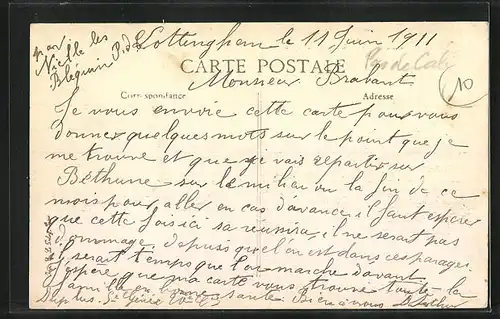 par Vielle les
Bléquin P.d.C.
Lottinghem le 11 Juin 1911
CARTE POSTALE
Pas de Calais
Monsieur Brabant
Correspondance Adresse
10
Je vous envoie cette carte pour vous
donner quelques mots sur le point que je
me trouve et que je vais repartir sur
Béthune sur le milieu ou la fin de ce
mois pour aller en cas d'avance il faut espérer
que cette fois ici sa reunira, il ne serait pas
dommage, depuis que l'on est dans ces parages.
il serait temps que l'on marche davant
j'espère que ma carte vous trouve toute la
famille en bonne santé. Bien a vous